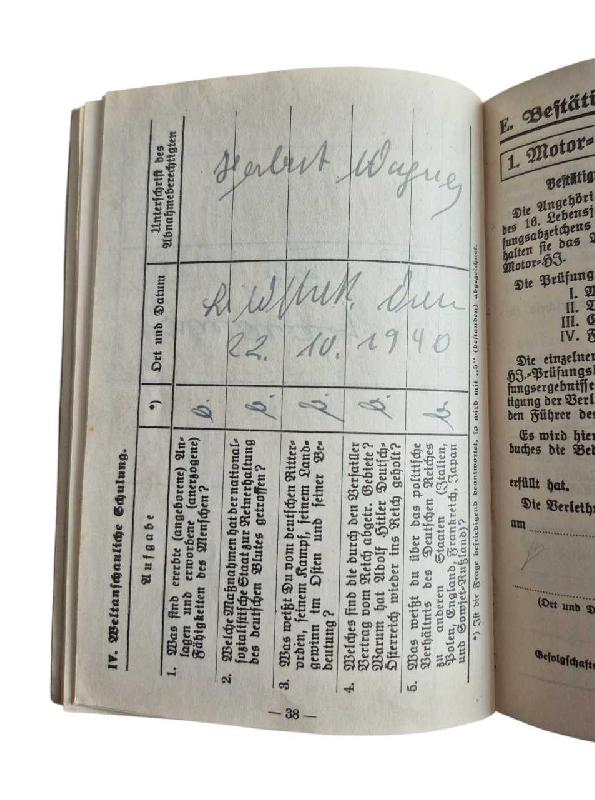 IV. Weltanschauliche Schulung.
Aufgabe
*)
Ort und Datum
Unterschrift des
Abnahmeberechtigten
1. Was sind ererbte (angeborene) An-
lagen und erworbene (anerzogene)
Fähigkeiten des Menschen?
2. Welche Maßnahmen hat der national-
sozialistische Staat zur Reinerhaltung
des deutschen Blutes getroffen?
3. Was weißt Du vom deutschen Ritter-
orden, seinem Kampf, seinem Land-
gewinn im Osten und seiner Be-
deutung?
4. Welches sind die durch den Versailler
Vertrag vom Reich abgetr. Gebiete?
Warum hat Adolf Hitler Deutsch-
Österreich wieder ins Reich geholt?
5. Was weißt du über das politische
Verhältnis des Deutschen Reiches
zu anderen Staaten (Italien,
Polen, England, Frankreich, Japan
und Sowjet-Rußland)?
22. 10. 1940
Herbert Wagner
*) Ist die Frage befriedigend beantwortet, so wird mit „b“ (bestanden) abgezeichnet.
— 38 —
E. Bestäti
1. Motor-
Bestätig
Die Angehöri
des 18. Lebensj
fungsabzeichens
halten sie das A
Motor-HJ.
Die Prüfung
I. M
II.
III. G
IV. F
Die einzelner
HJ.-Prüfungsk
fungsergebnisse
tigung der Verl
den Führer des
Es wird hier
buches die Bed
erfüllt hat.
Die Verleihu
am
(Ort und D
Gefolgschafts